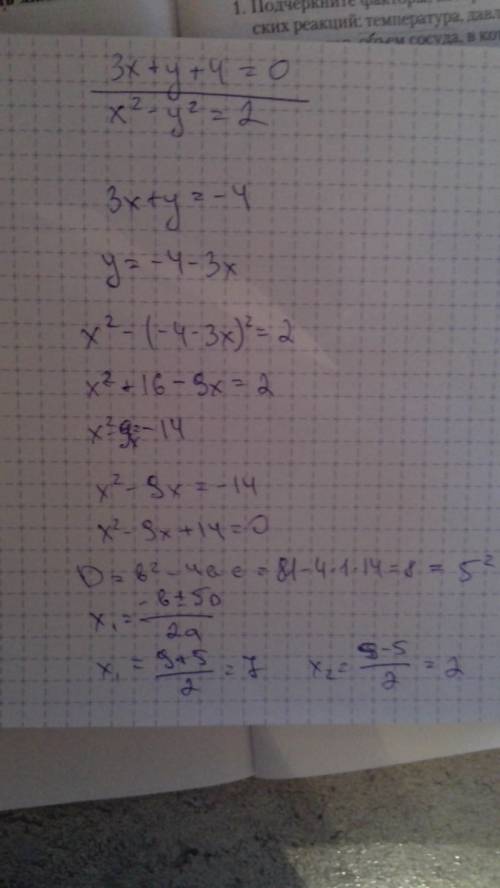 1. Подчеркните
ских реакций: температура, давл
объем сосуда, в кот
3x+y+4=0
x²-y²=2
3x+y=-4
y=-4-3x
x²-(-4-3x)²=2
x²+16-9x=2
x²-9x=-14
x²-9x=-14
x²-9x+14=0
D=в²-4ac=81-4·1·14=8=5²
x₁=-в±5D/2a
x₁=9+5/2=7 x₂=9-5/2=2